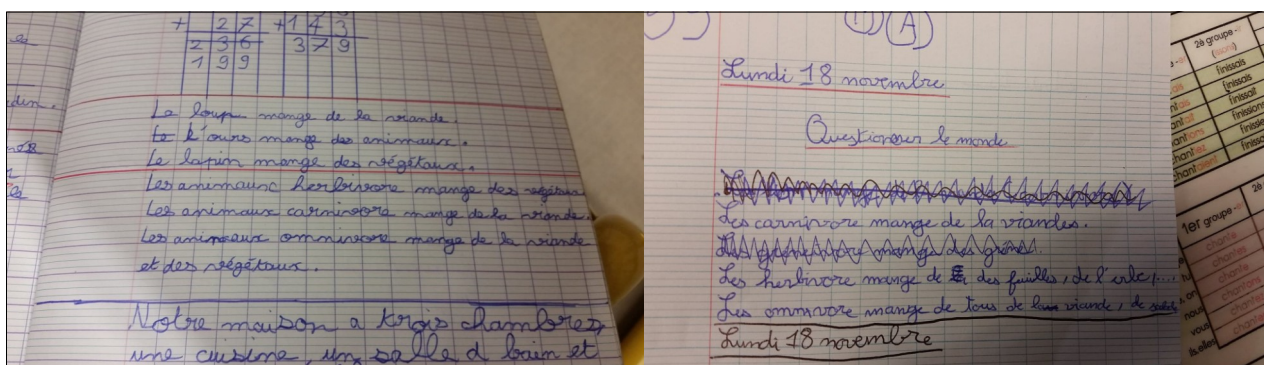 + 2 7 + 1 4 3
2 3 6 3 7 9
1 9 9
Le loup mange de la viande.
L'ours mange des animaux.
Le lapin mange des végétaux.
Les animaux herbivore mange des végétaux
Les animaux carnivore mange de la viande.
Les animaux omnivore mange de la viande
et des végétaux.
Notre maison a trois chambres,
une cuisine, un salle d bain et
A
Lundi 18 novembre
Questionner le monde
Les carnivore mange de la viandes.
Les herbivore mange de des fuilles, de l'erbe,...
Les omnivore mange de tous de viande, de
Lundi 18 novembre
2è groupe
finissais
finissais
finissait
finissions
1er groupe
chante
chantes
chante
nous
vous
ils.elles